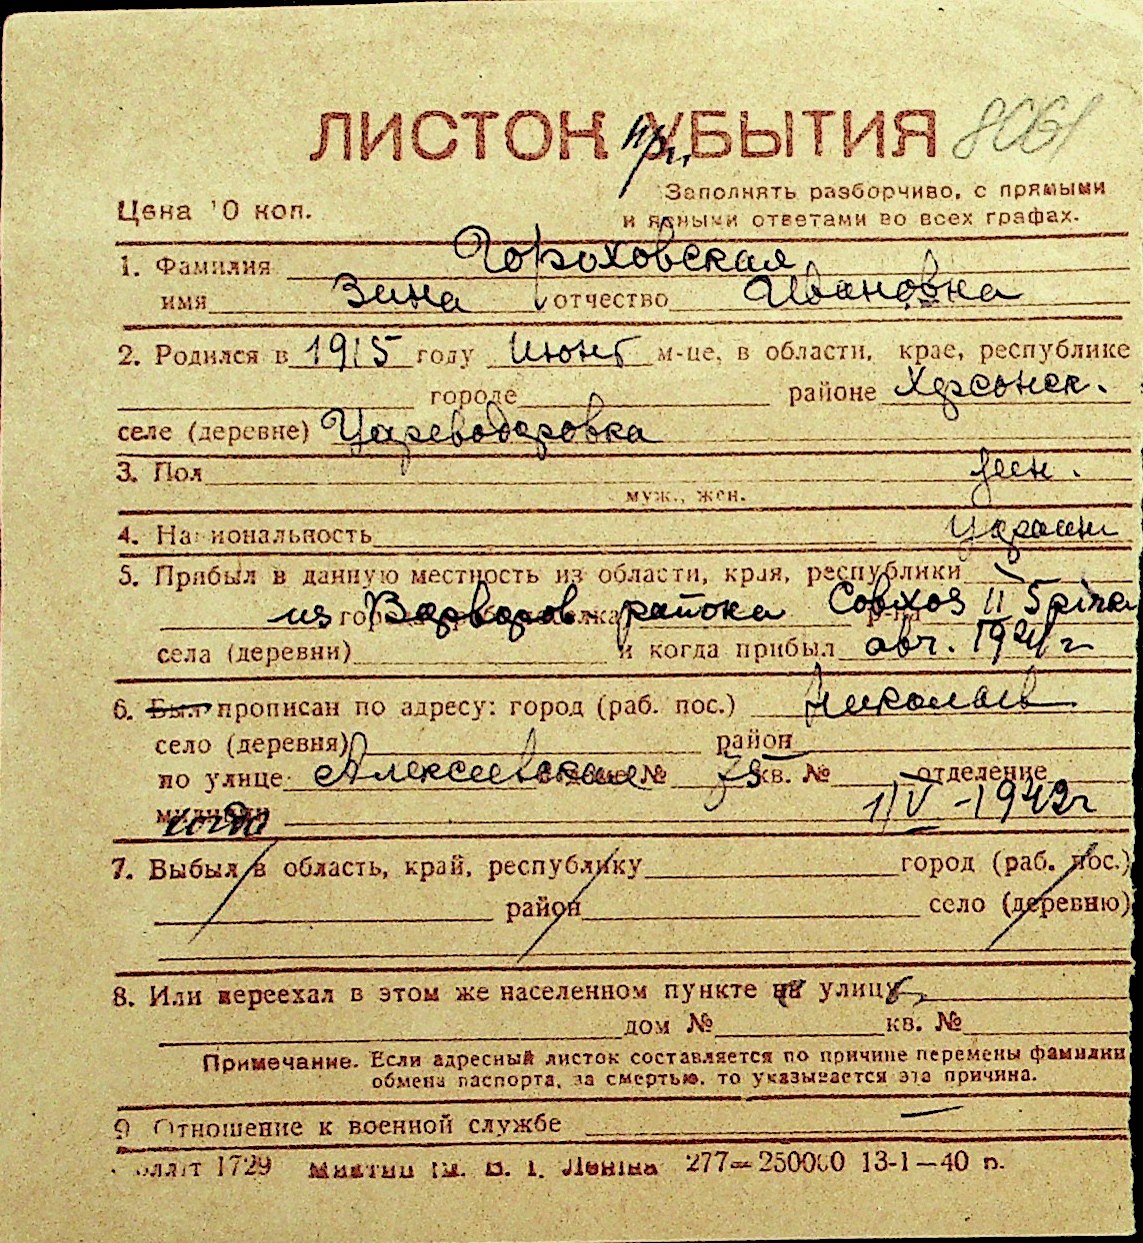 ЛИСТОК УБЫТИЯ 8061
при
Цена 10 коп.
Заполнять разборчиво, с прямыми
и ясными ответами во всех графах.
1. Фамилия Гороховская
имя Зина отчество Ивановна
2. Родился в 1915 году Июнь м-це, в области, крае, республике
городе районе Херсонск.
селе (деревне) Цареводаровка
3. Пол жен.
муж., жен.
4. Национальность Украин
5. Прибыл в данную местность из области, края, республики
из города района Совхоз II р-на
села (деревни) и когда прибыл авг. 1941 г
6. Был прописан по адресу: город (раб. пос.) Николаев
село (деревня) район
по улице Алексеевская № 75 кв. № отделение
милиции когда 1/V-1942г
7. Выбыл в область, край, республику город (раб. пос.)
район село (деревню)
8. Или переехал в этом же населенном пункте на улицу
дом № кв. №
Примечание. Если адресный листок составляется по причине перемены фамилии
обмена паспорта, за смертью, то указывается эта причина.
9 Отношение к военной службе —
1729 им. В. І. Леніна 277—250000 13-1—40 р.